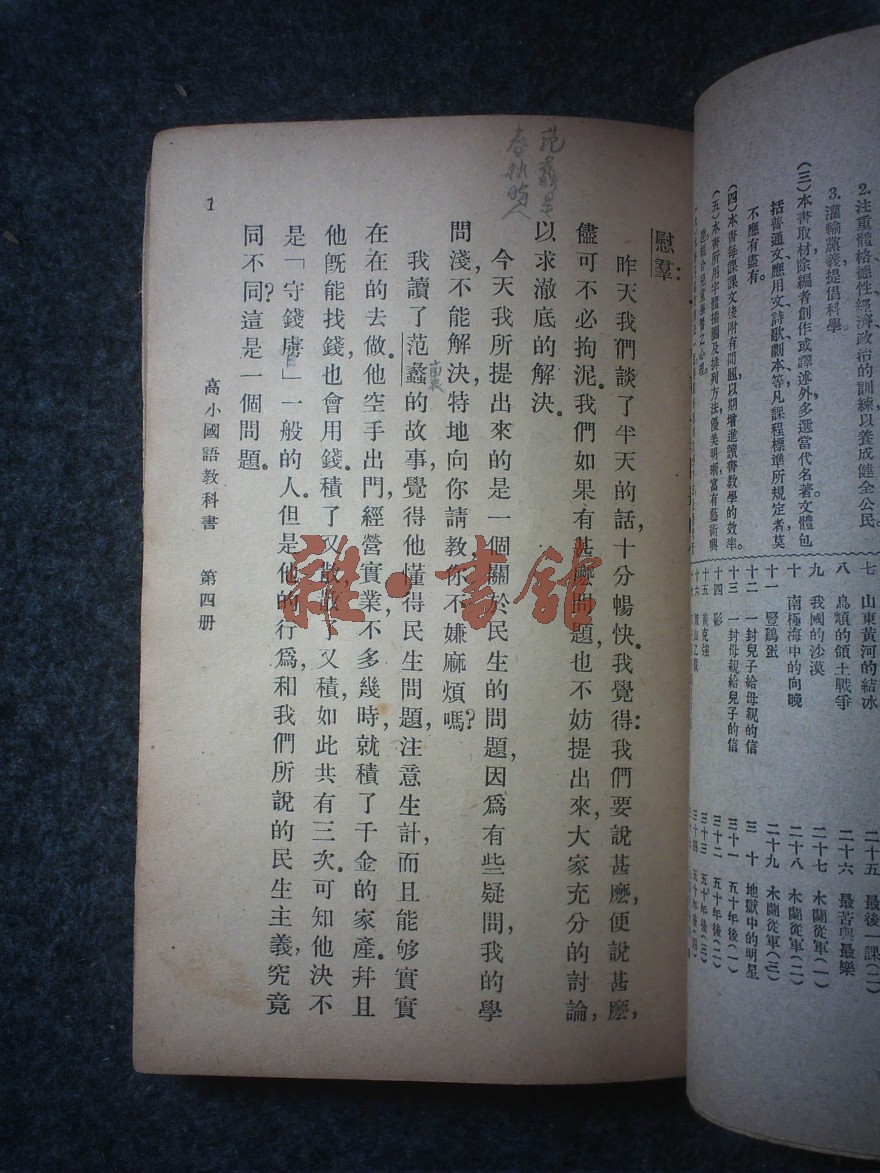 2.注重體格、德性、經濟、政治的訓練以養成健全公民。
3.灌輸黨義提倡科學。
(三)本書取材除編者創作或譯述外多選當代名著文體包
括普通文應用文詩歌劇本等凡課程標準所規定者莫
不應有盡有。
(四)本書每課課文後附有問題以期增進讀書教學的效率。
(五)本書所用字體插圖及排列方法優美明晰富有藝術興
七 山東黃河的結冰
八 鳥類的領土戰爭
九 我國的沙漠
十 南極海中的向晚
十一 豎鷄蛋
十二 一封兒子給母親的信
十三 一封母親給兒子的信
十四 影
十五 黃克強
二十五 最後一課(二)
二十六 最苦與最樂
二十七 木蘭從軍(一)
二十八 木蘭從軍(二)
二十九 木蘭從軍(三)
三十 地獄中的明星
三十一 五十年後(一)
三十二 五十年後(二)
三十三 五十年後(三)
三十四 五十年後(四)
范蠡是
春秋時人
慰羣:
昨天我們談了半天的話,十分暢快。我覺得:我們要說甚麼,便說甚麼,
儘可不必拘泥。我們如果有甚麼問題,也不妨提出來,大家充分的討論,
以求澈底的解決。
今天我所提出來的是一個關於民生的問題,因爲有些疑問,我的學
問淺,不能解決,特地向你請教,你不嫌麻煩嗎?
我讀了范蠡的故事,覺得他懂得民生問題,注意生計,而且能够實實
在在的去做。他空手出門,經營實業,不多幾時,就積了千金的家產。幷且
他旣能找錢,也會用錢。積了又散,散了又積,如此共有三次。可知他決不
是「守錢虜」一般的人。但是他的行爲,和我們所說的民生主義,究竟
同不同?這是一個問題。
高小國語教科書 第四册
1
雜·書館